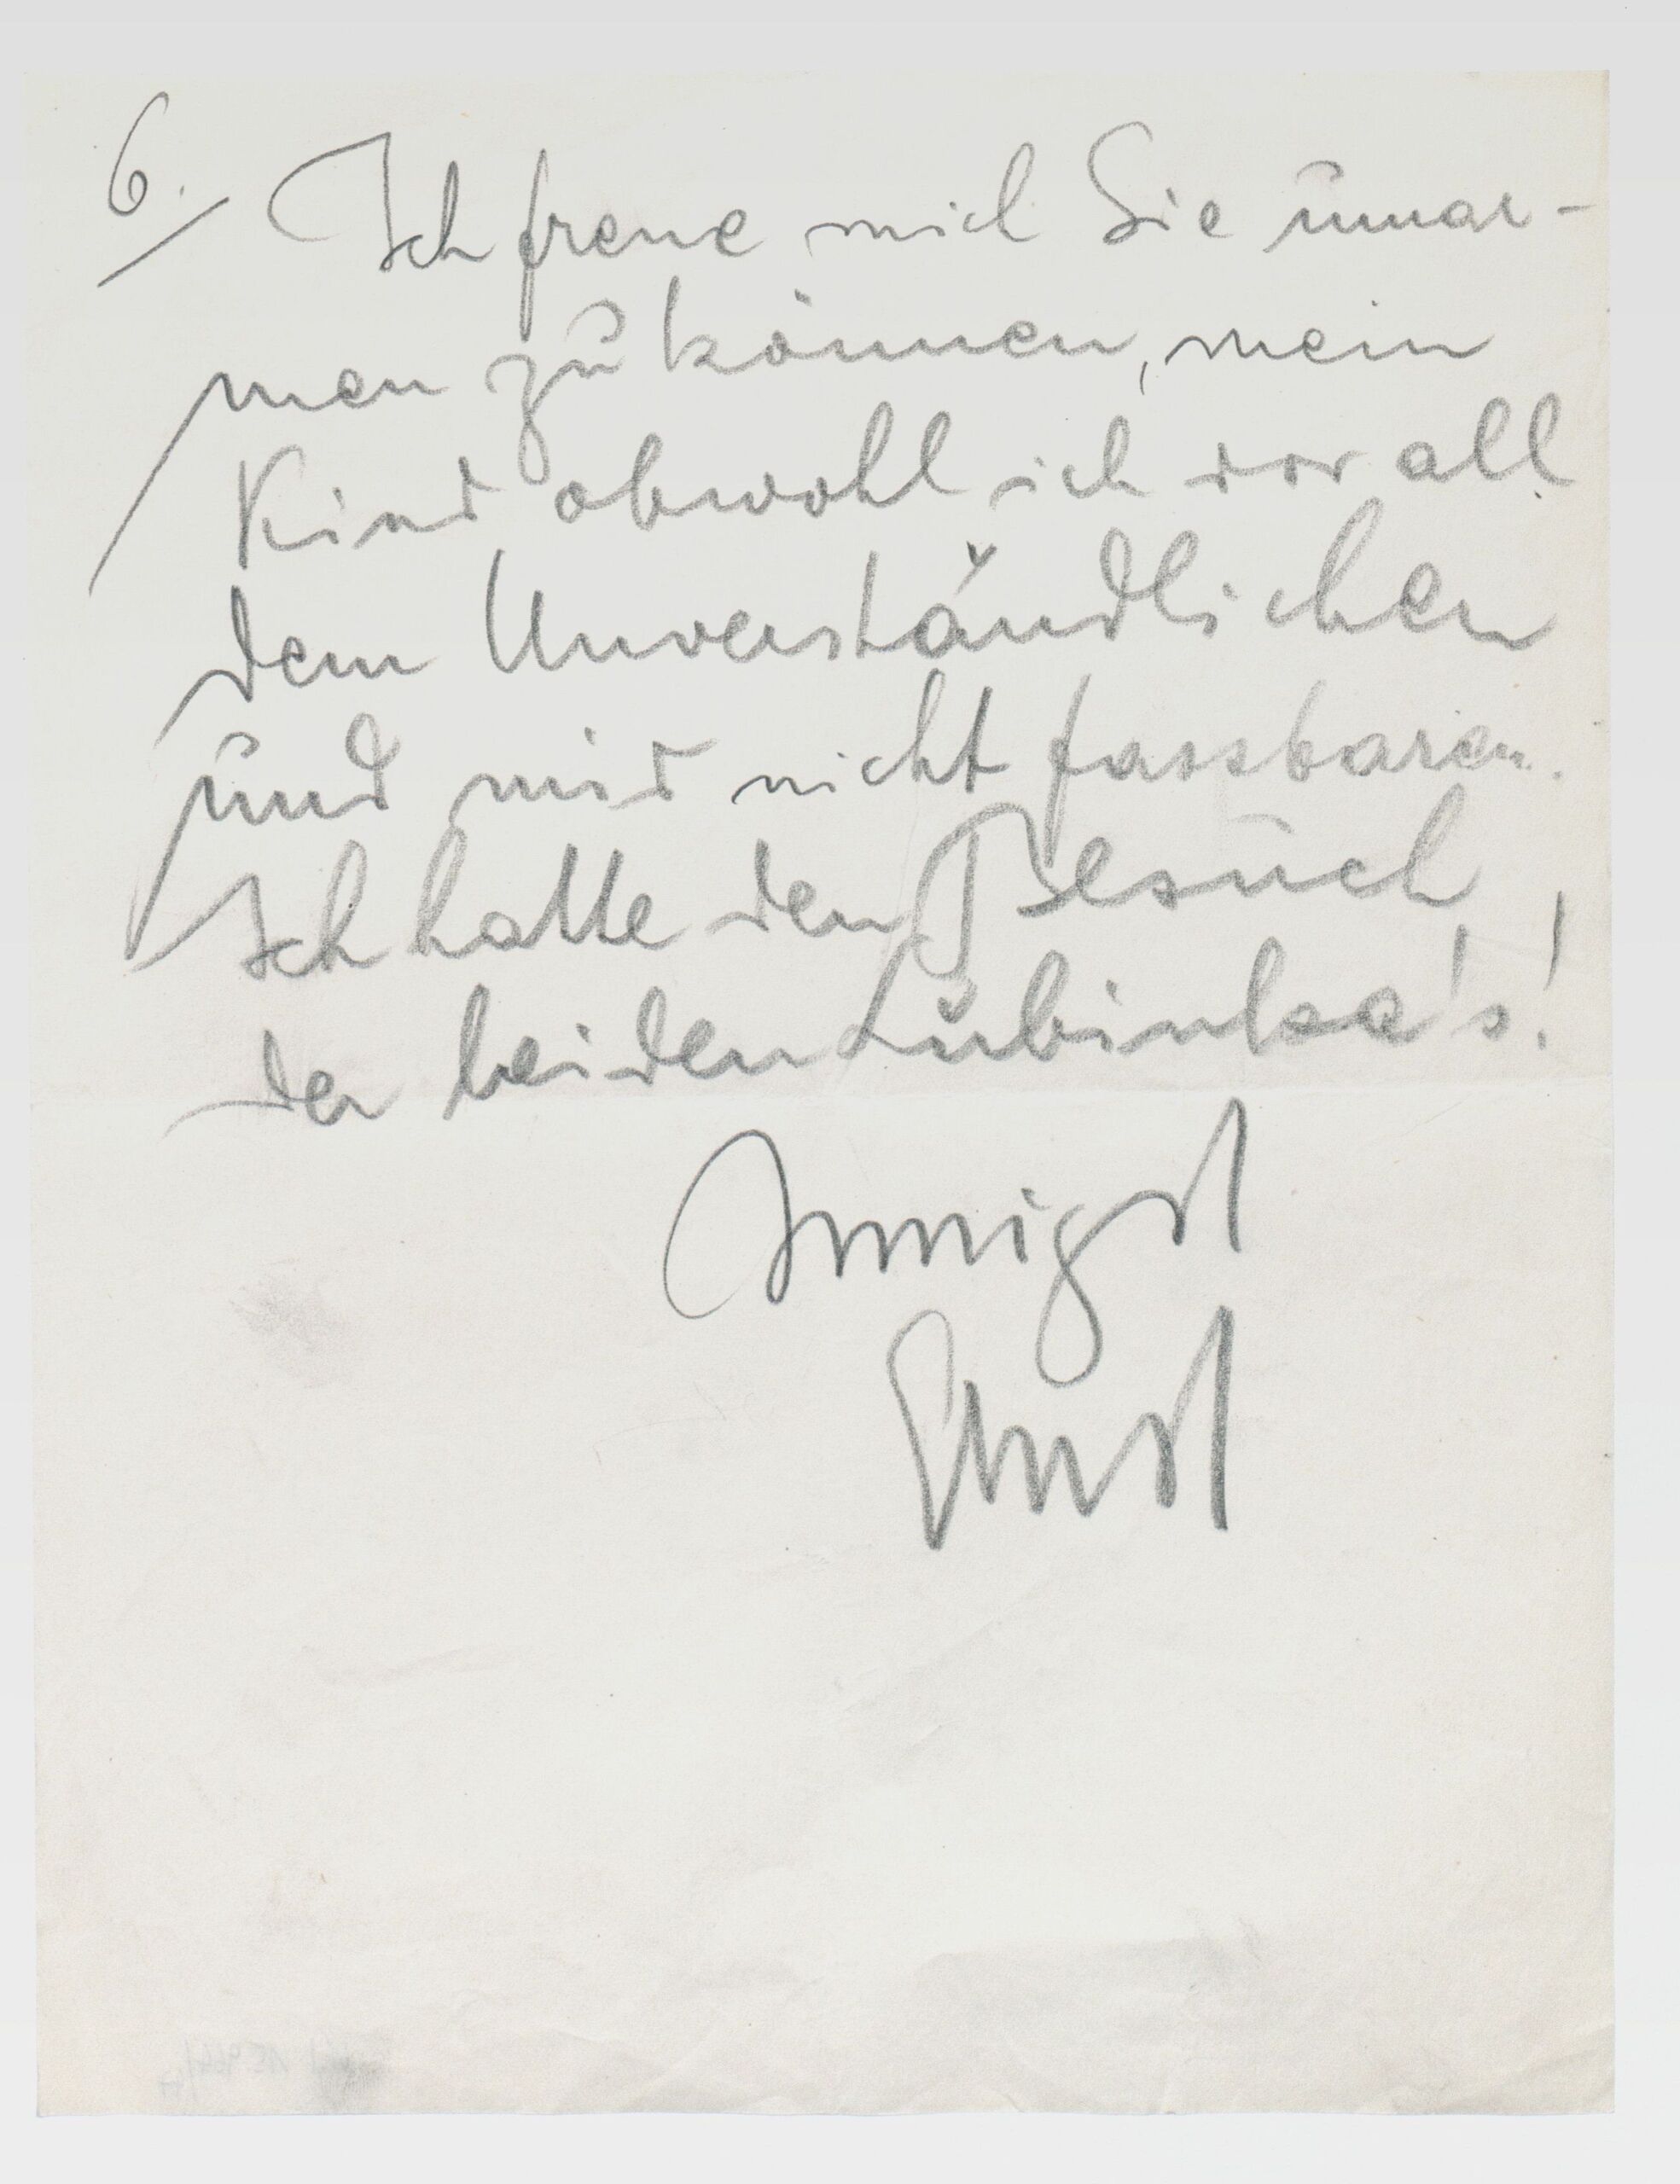 6./ Ich freue mich Sie umar-
men zu können, mein
Kind obwohl ich vor all
dem Unverständlichen
und mir nicht fassbaren.
Ich hatte den Besuch
der beiden Lubinka's!
Innigst
Ernst